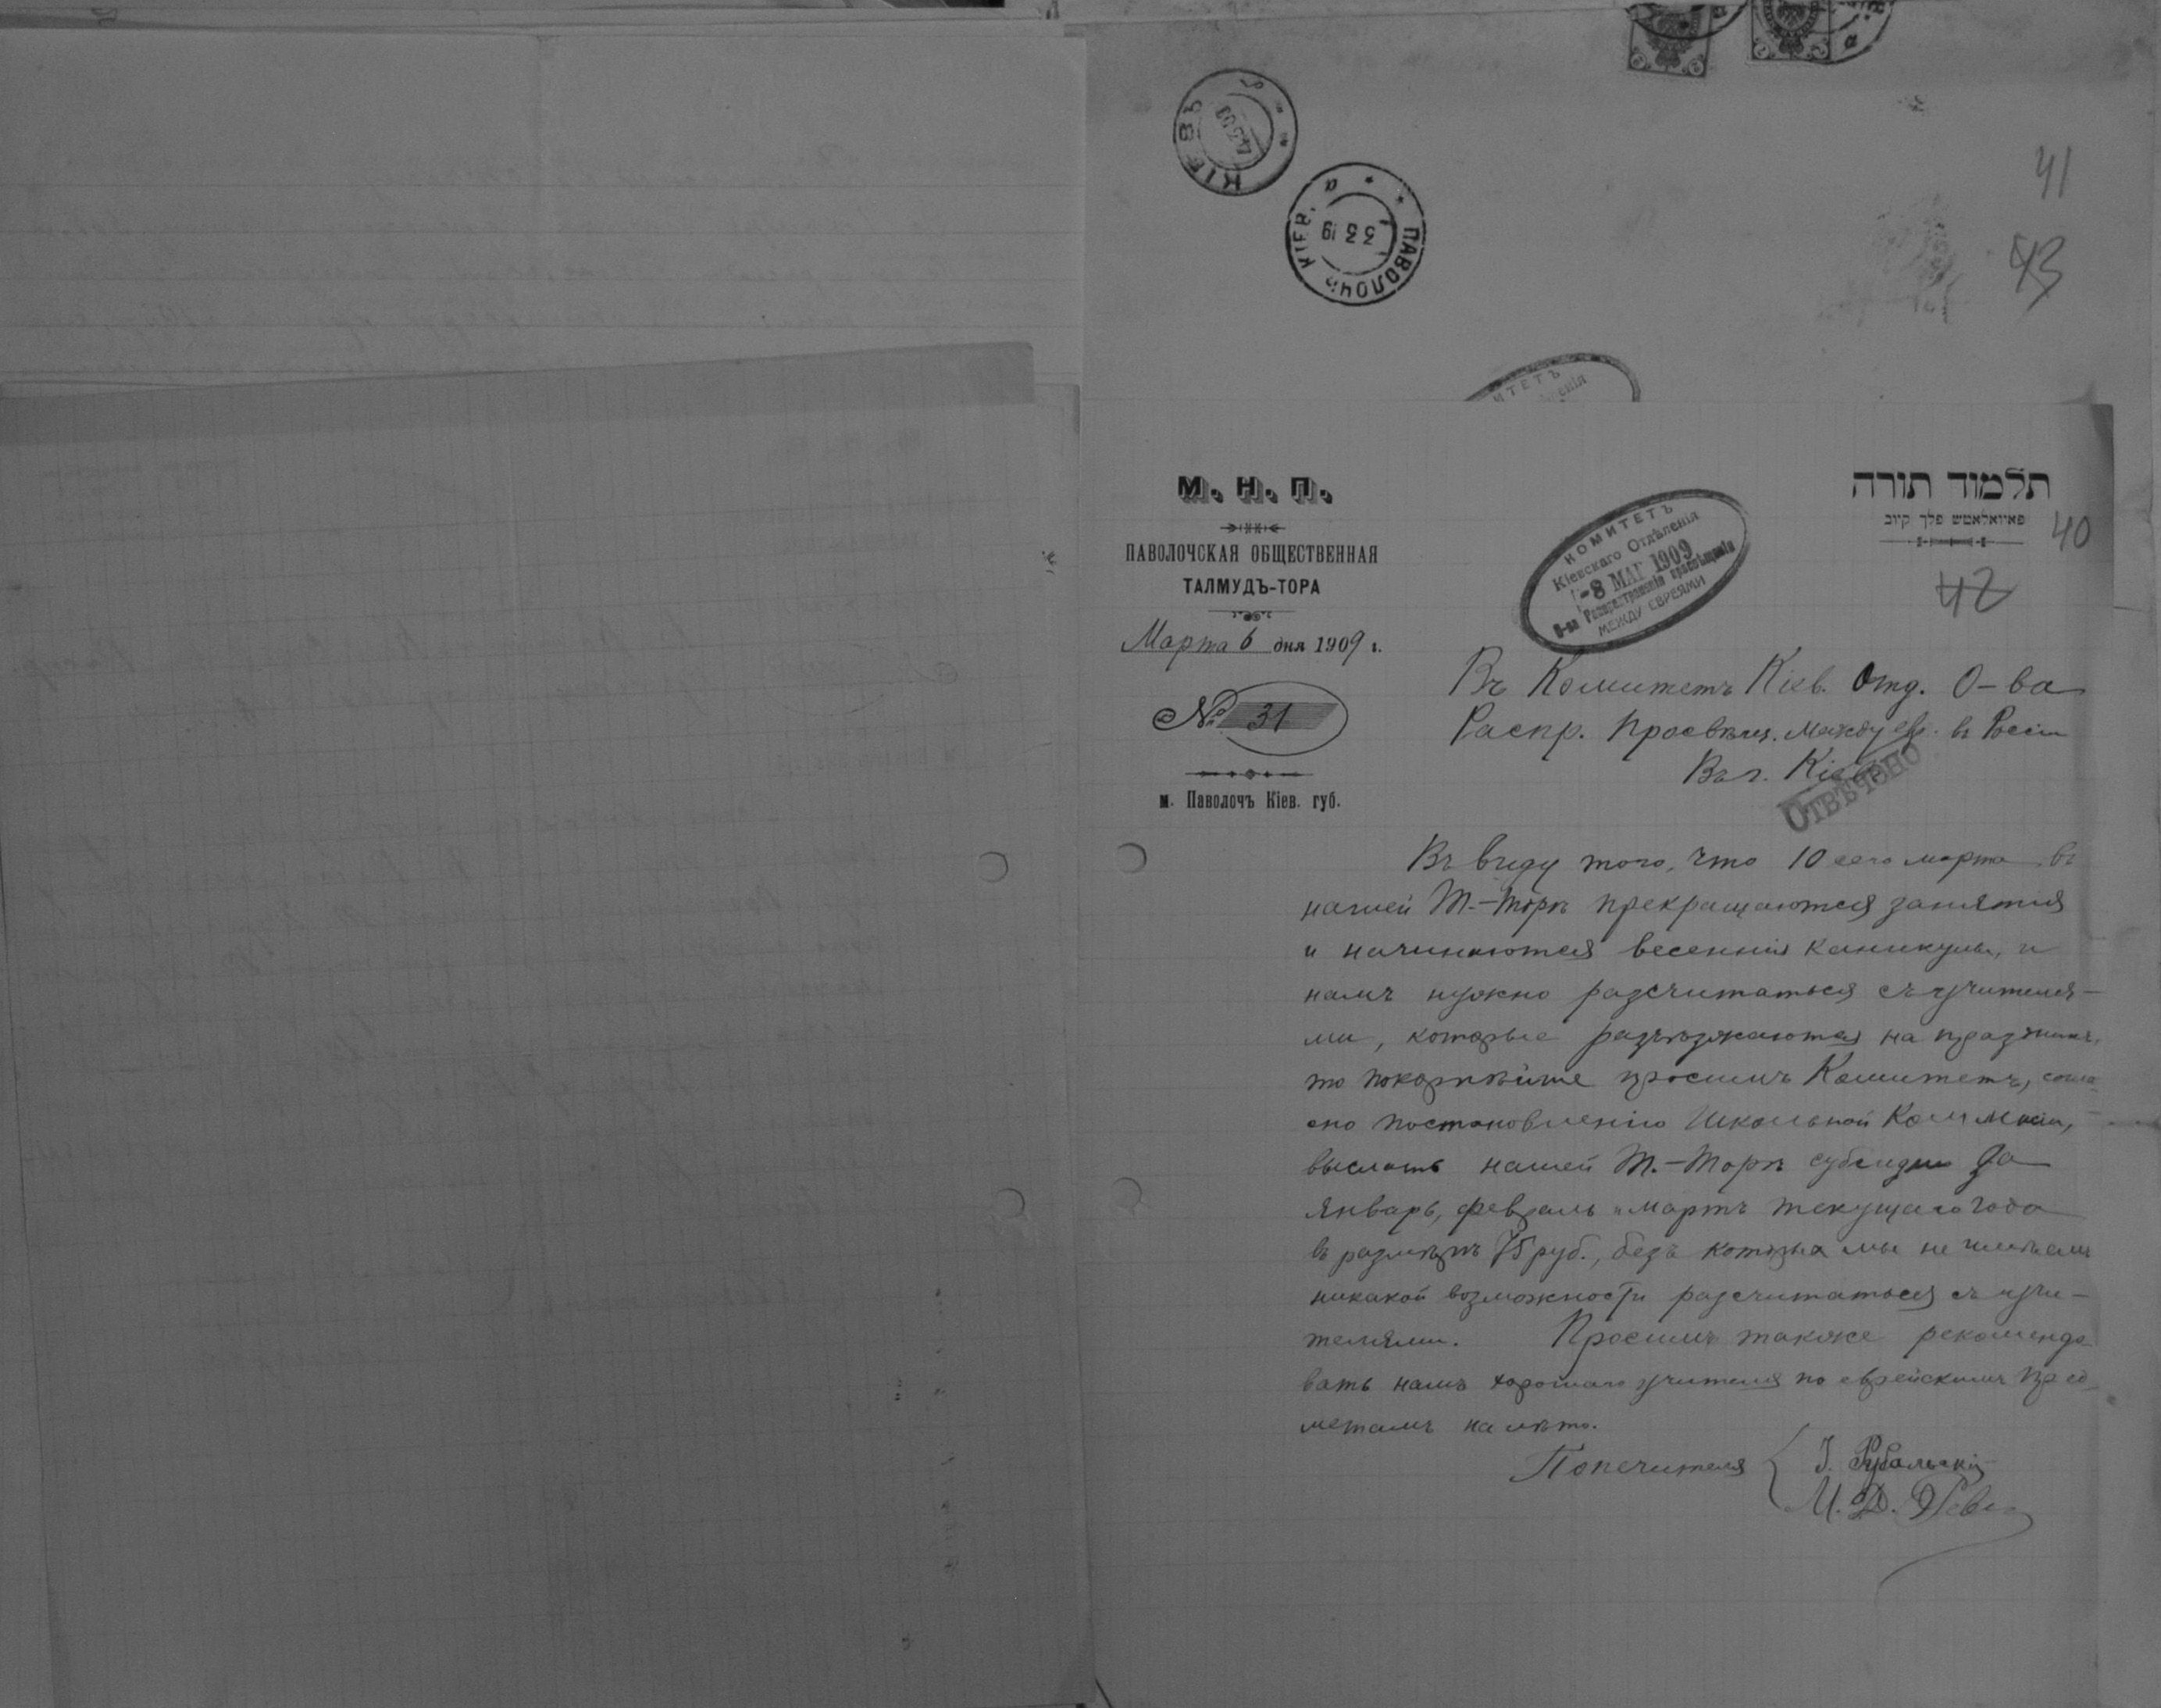 КІЕВЪ
ПАВОЛОЧЬ КІЕВ. а
3 3 19
41
43
М. Н. П.
ПАВОЛОЧСКАЯ ОБЩЕСТВЕННАЯ
ТАЛМУДЪ-ТОРА
Марта 6 дня 1909 г.
№ 31
м. Паволочъ Кіев. губ.
КОМИТЕТЪ
Кіевскаго Отдѣленія
-8 МАР 1909
О-ва Распространенія просвѣщенія
МЕЖДУ ЕВРЕЯМИ
תלמוד תורה
פאוואלאטש פלך קיוב
40
42
Въ Комитетъ Кіев. Отд. О-ва
Распр. Просвѣщ. между евр. въ Росіи
Въ г. Кіевѣ
ОТВѢЧЕНО
Въ виду того, что 10 сего марта въ
нашей Т.-Торѣ прекращаются занятія
и начинаются весеннія каникулы, и
намъ нужно разсчитаться съ учителя-
ми, которые разъѣзжаются на праздникъ,
то покорнѣйше просимъ Комитетъ, согла-
сно постановленію Школьной Коммисіи,
выслать нашей Т.-Торѣ субсидіи за
Январь, февраль и мартъ текущаго года
въ размѣрѣ 75 руб., безъ которыхъ мы не имѣемъ
никакой возможности разсчитаться съ учи-
телями. Просимъ также рекомендо-
вать намъ хорошаго учителя по еврейскимъ пред-
метамъ на лѣто.
Попечителя { І. Рубальскій
М. Д.